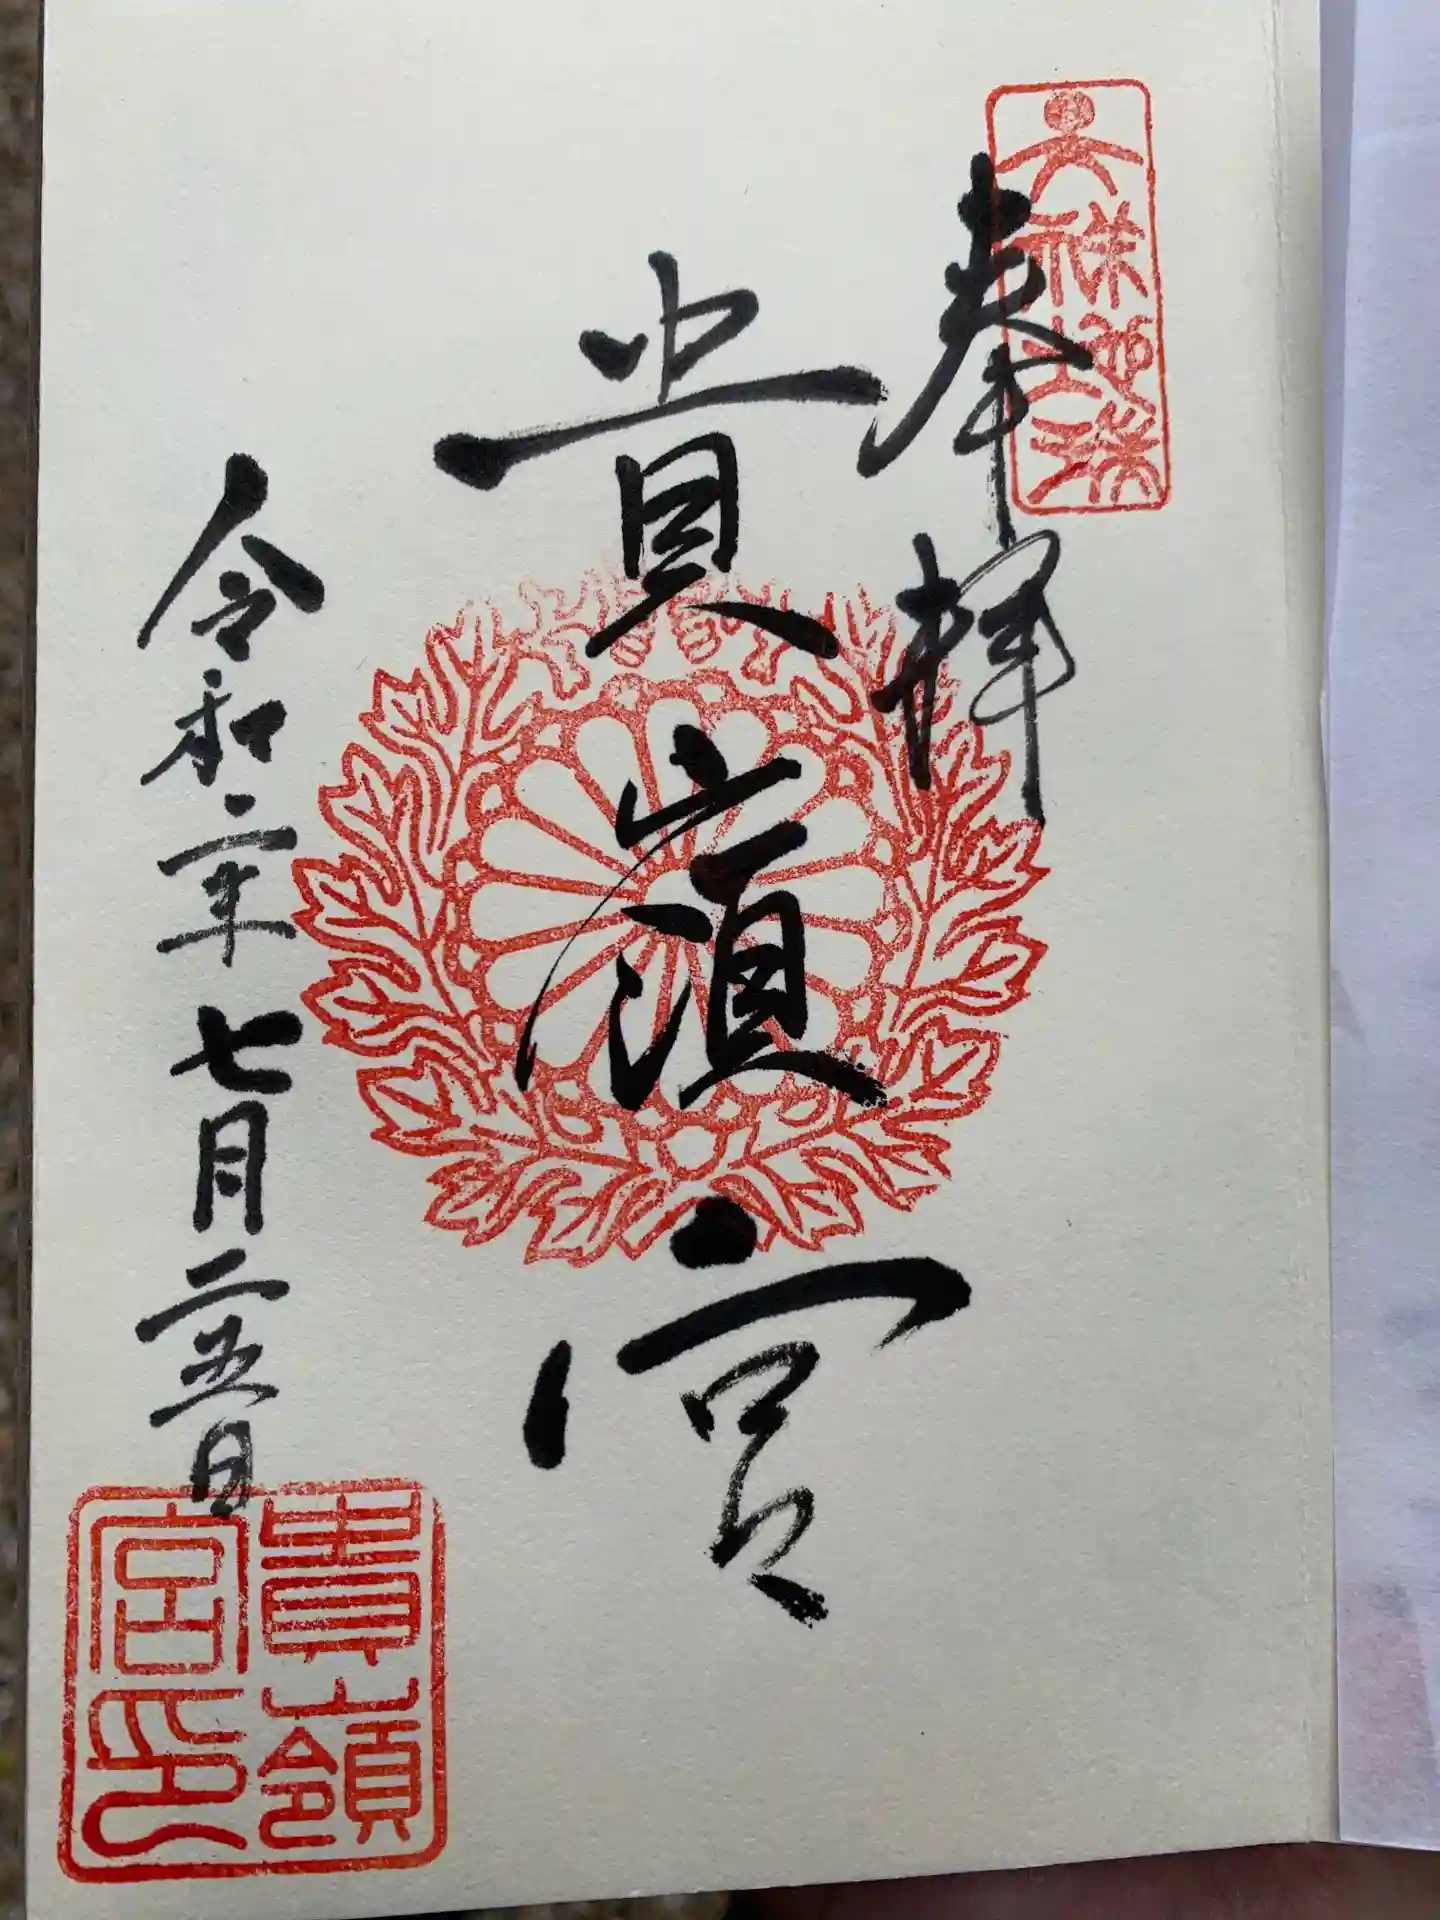 天祥地瑞
奉拝
貴嶺宮
令和二年七月二五日
貴嶺
宮印